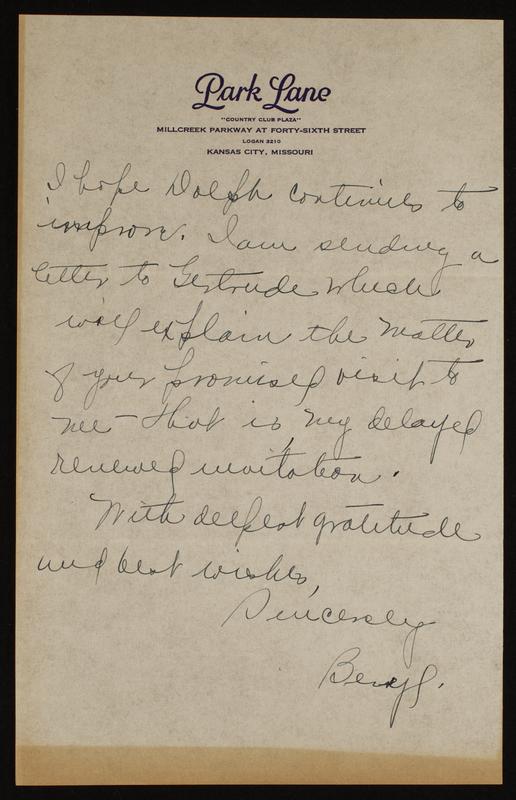 Park Lane
"COUNTRY CLUB PLAZA"
MILLCREEK PARKWAY AT FORTY-SIXTH STREET
LOGAN 3210
KANSAS CITY, MISSOURI
I hope Dolph continues to
improve. I am sending a
letter to Gertrude which
will explain the matter
of your promised visit to
me – that is, my delayed
renewed invitation.
With deepest gratitude
and best wishes,
Sincerely
Beryl.